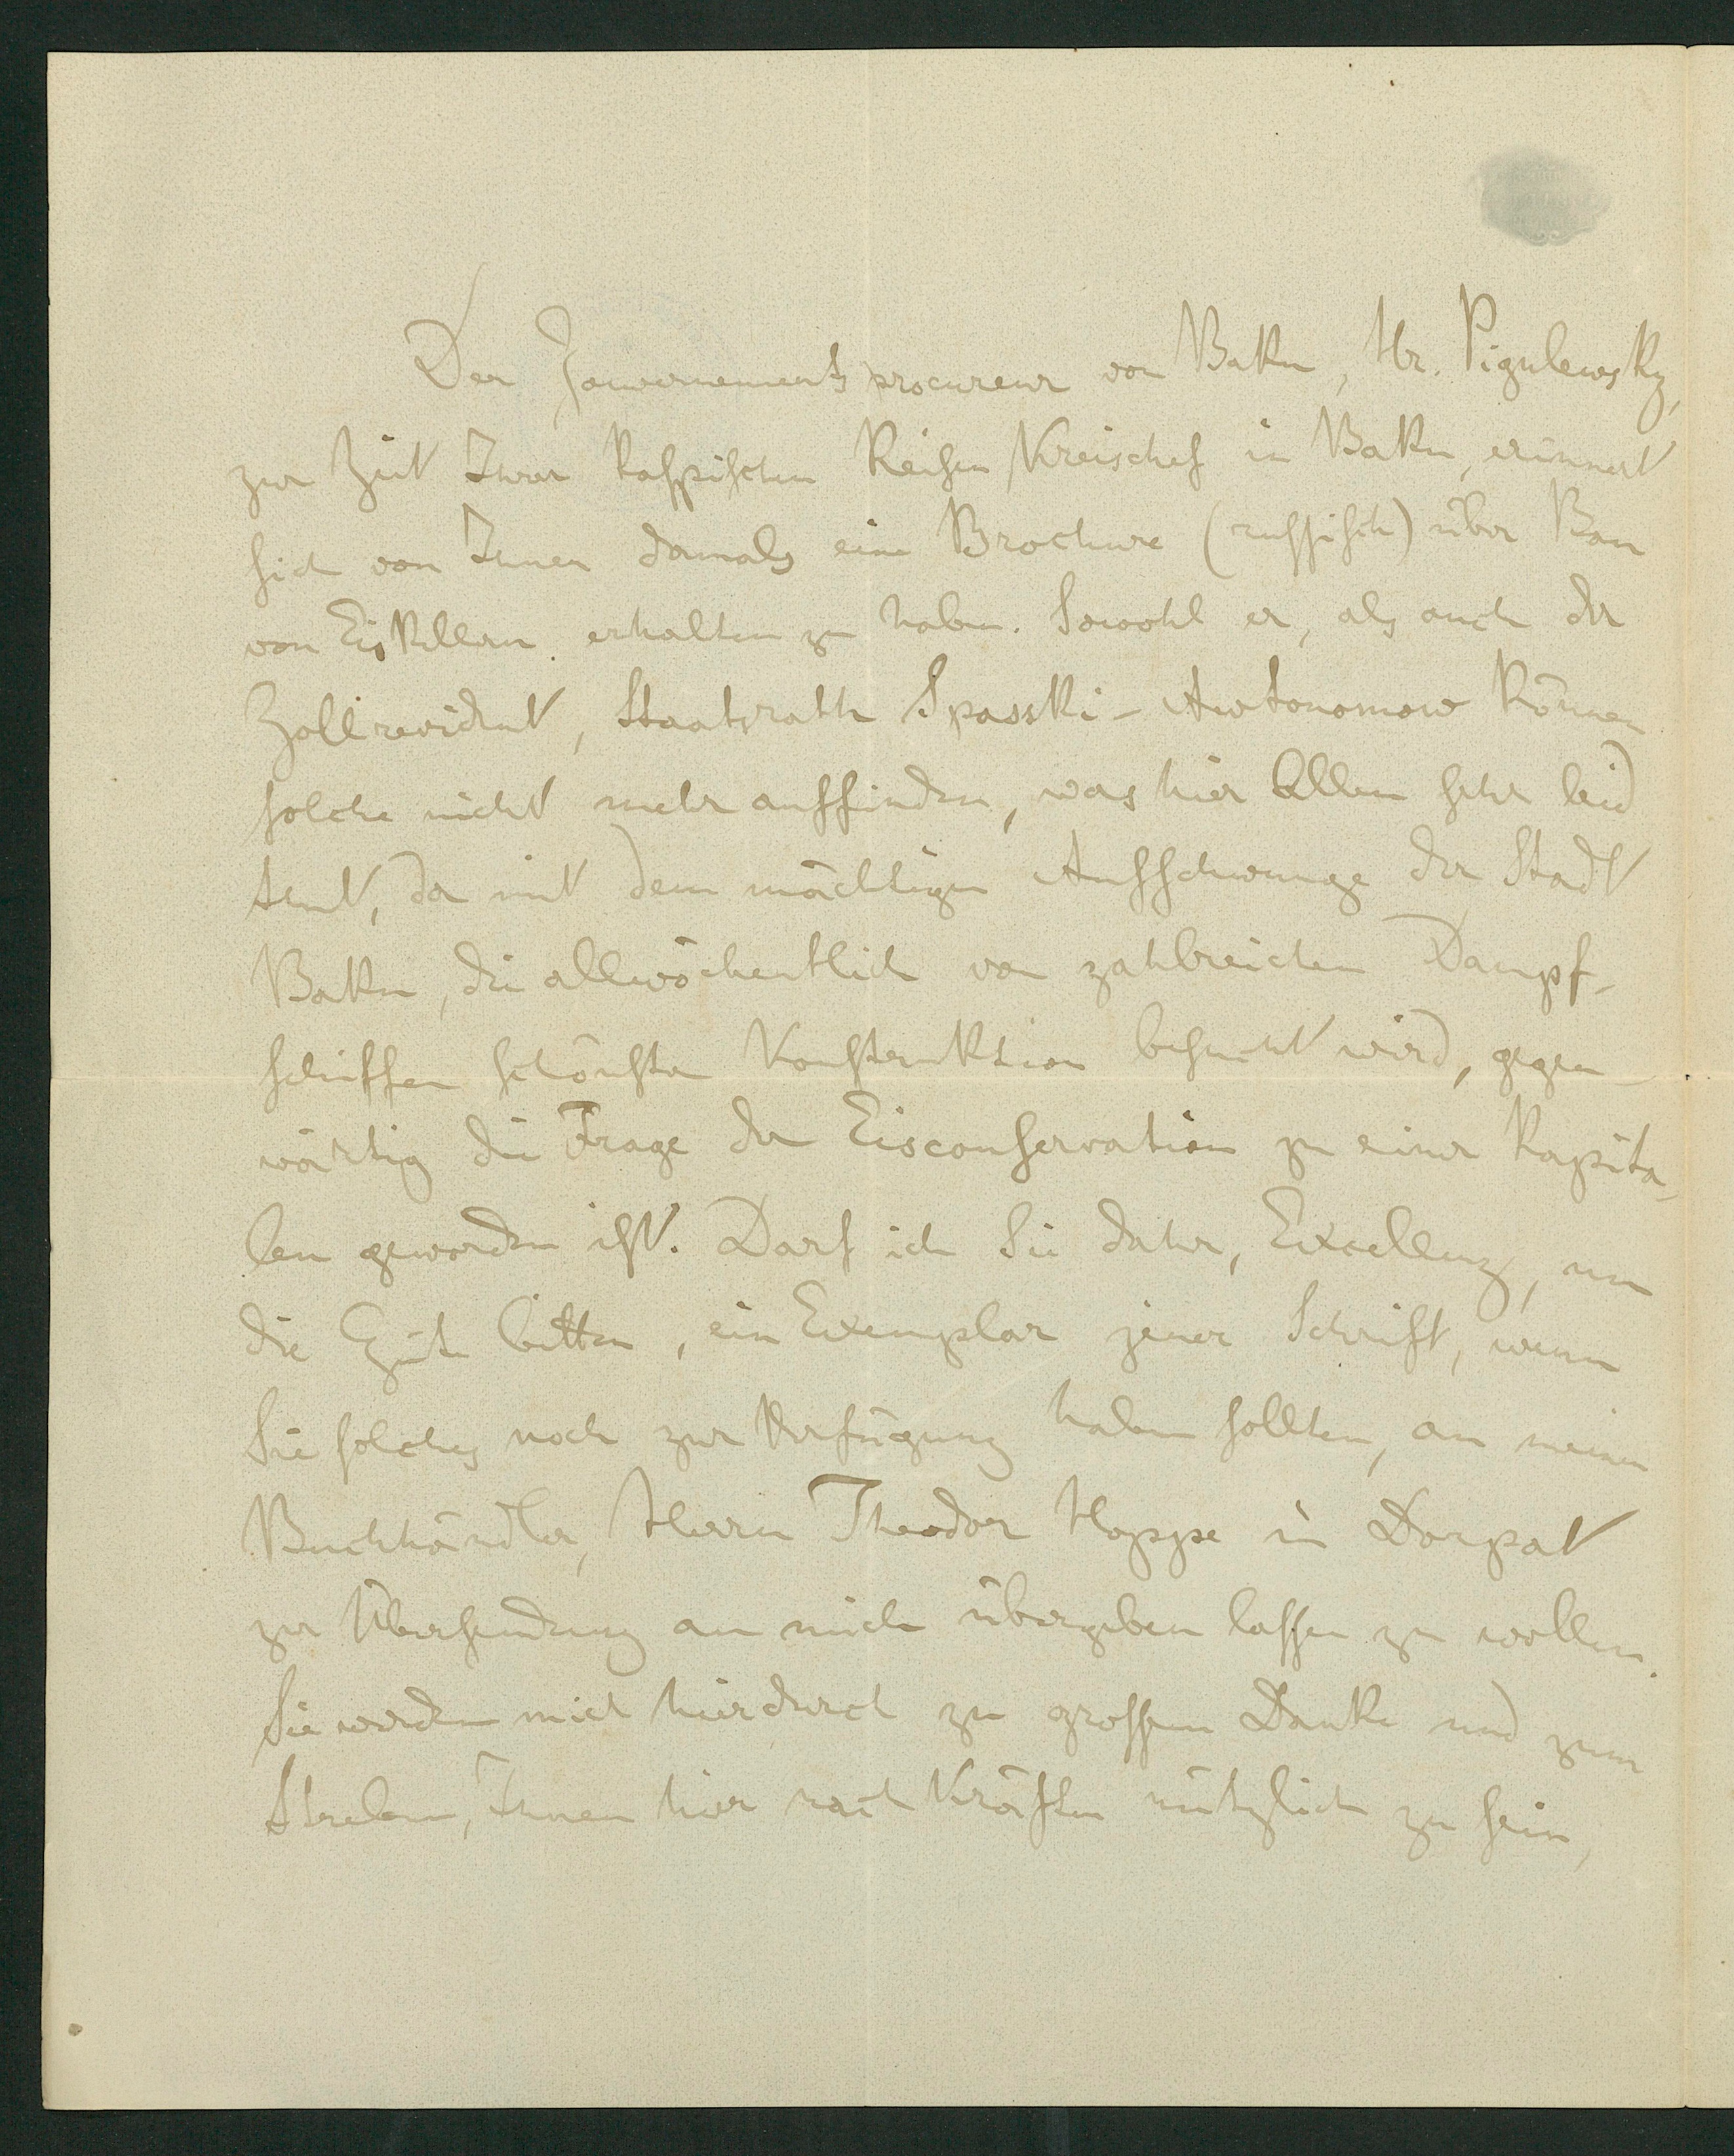 Der Gouvernementsprocureur von Baku, Hr. Pigulewsky,
zur Zeit Ihrer kaspischen Reisen Kreischef in Baku, erinnert
sich von Ihnen damals eine Brochure (russisch) über Bau
von Eiskellern erhalten zu haben. Sowohl er, als auch der
Zollrevident, Staatsrath Spasski-Awtonomow können
solche nicht mehr auffinden, was hier Allen sehr leid
thut, da mit dem mächtigen Aufschwunge der Stadt
Baku, die allwöchentlich von zahlreichen Dampf-
schiffen schönster Konstruktion besucht wird, gegen-
wärtig die Frage der Eisconservation zu einer kapita-
len geworden ist. Darf ich Sie daher, Excellenz, um
die Güte bitten, ein Exemplar jener Schrift, wenn
Sie solches noch zur Verfügung haben sollten, an meinen
Buchhändler, Herrn Theodor Hoppe in Dorpat
zur Übersendung an mich übergeben lassen zu wollen.
Sie werden mich hierdurch zu grossem Danke und zum
Streben, Ihnen hier nach Kräften nützlich zu sein,